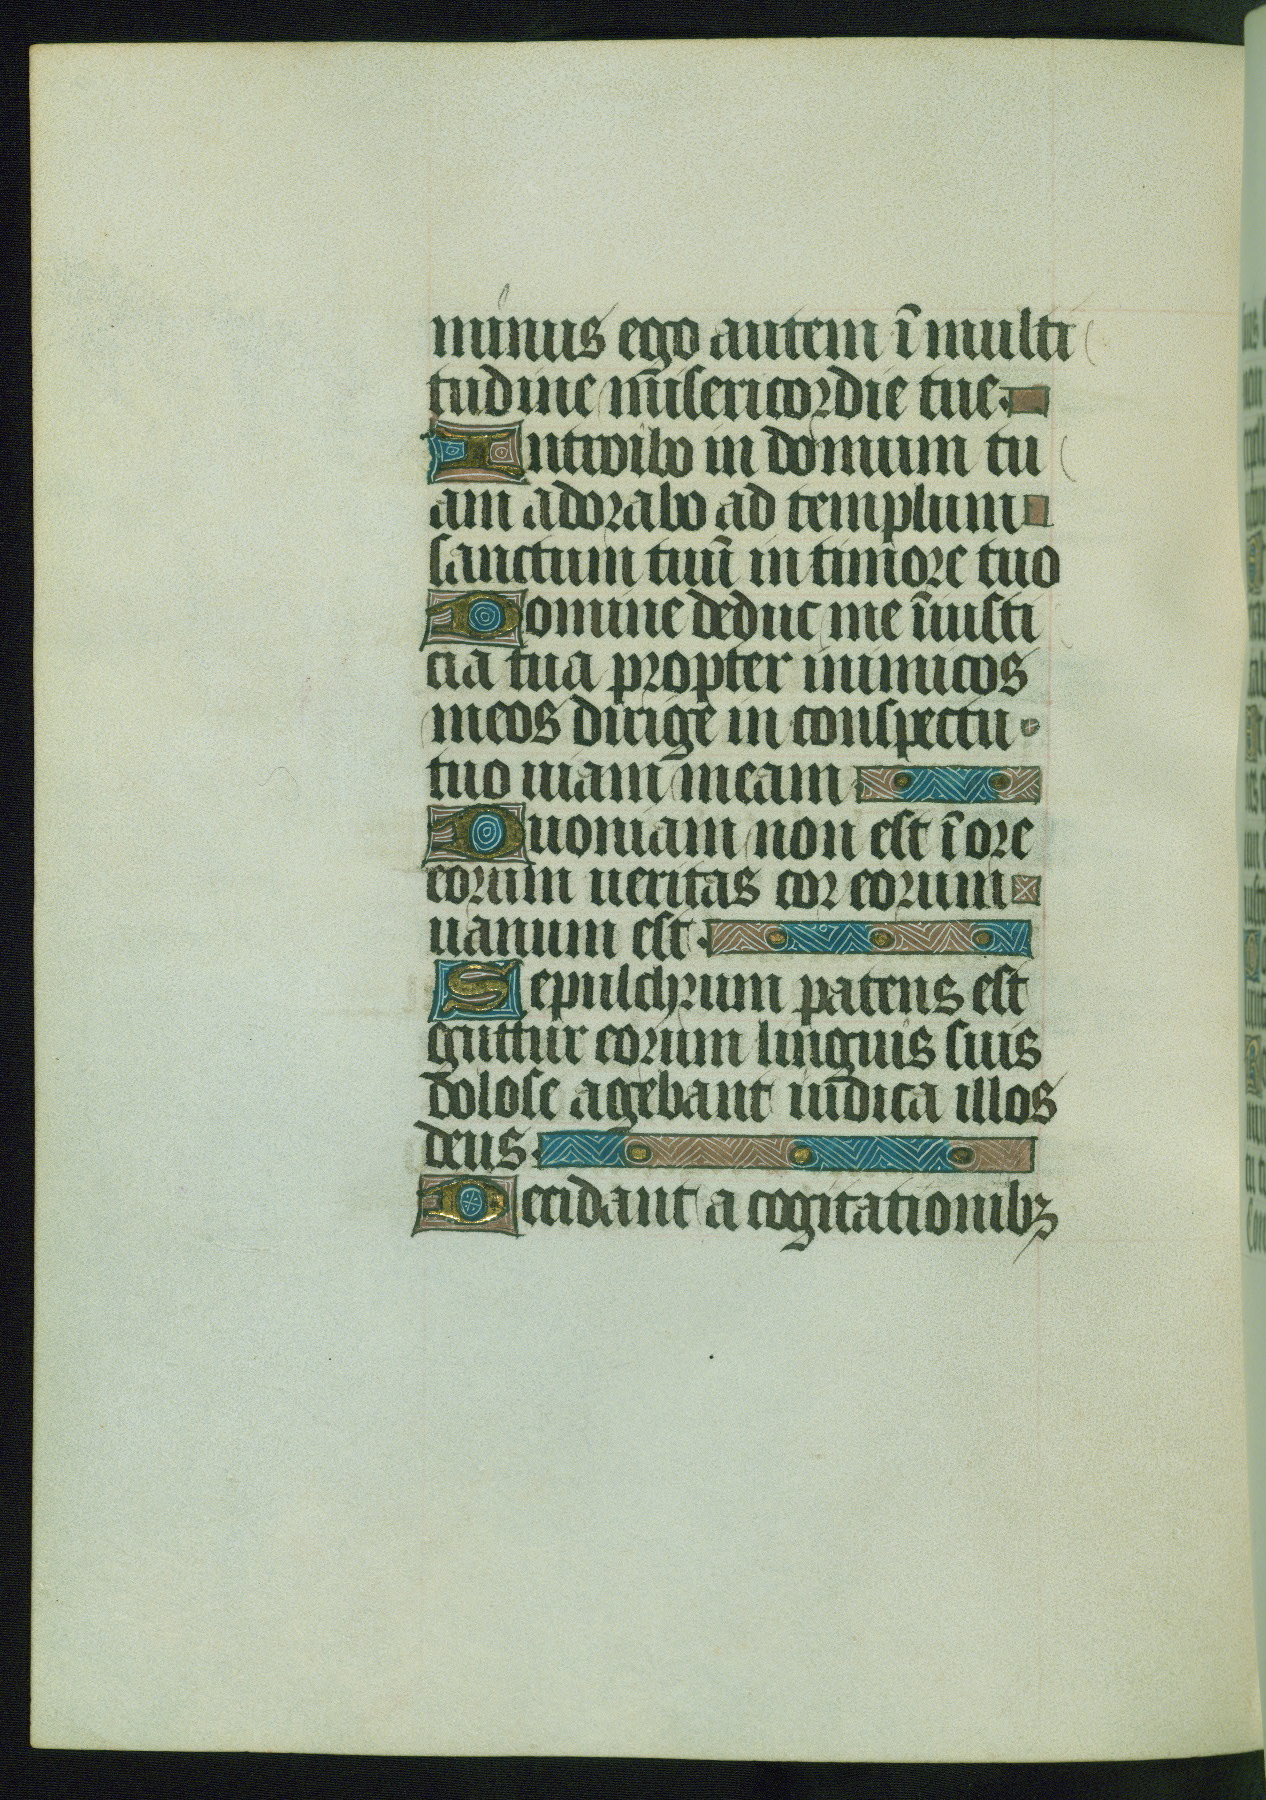 minus ego autem ī multi
tudine m̄isericordie tue.
Introibo in domum tu
am adorabo ad templum
sanctum tuū in timore tuo
Domine deduc me ī iusti
cia tua propter inimicos
meos dirige in conspectu
tuo uiam meam
Quoniam non est ī ore
eorum ueritas cor eorum
uanum est.
Sepulchrum patens est
guttur eorum linguis suis
dolose agebant iudica illos
deus.
Decidant a cogitationibꝫ